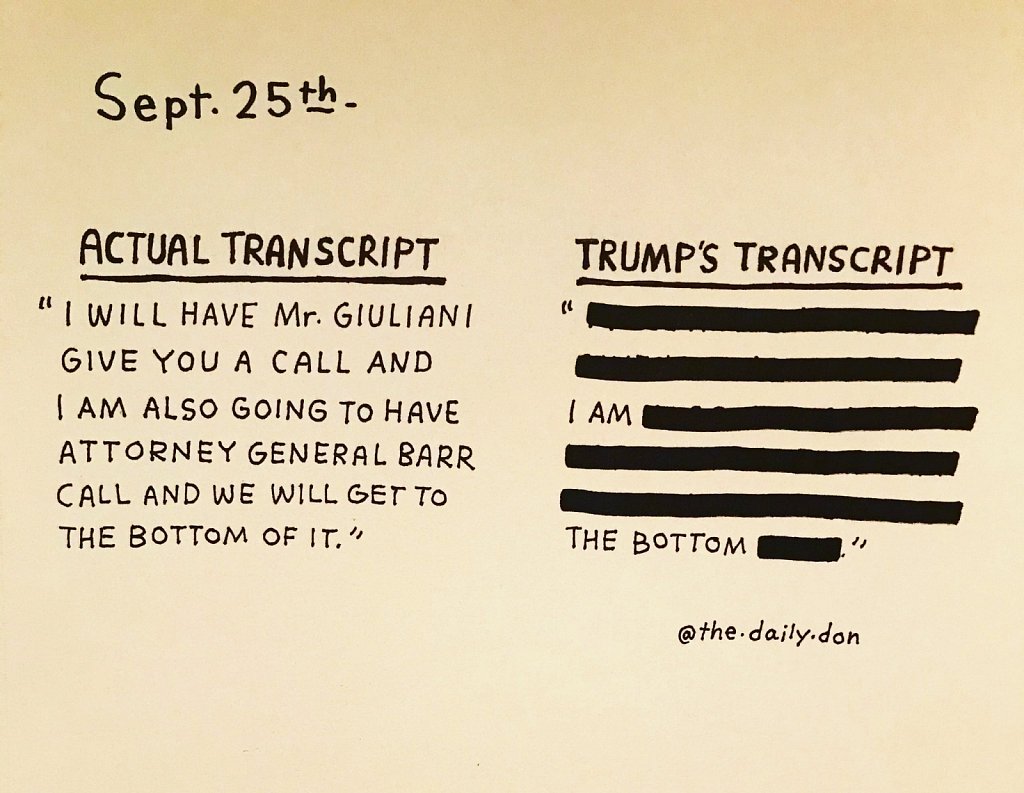 Sept. 25th-
ACTUAL TRANSCRIPT
"I WILL HAVE Mr. GIULIANI
GIVE YOU A CALL AND
I AM ALSO GOING TO HAVE
ATTORNEY GENERAL BARR
CALL AND WE WILL GET TO
THE BOTTOM OF IT."
TRUMP'S TRANSCRIPT
"
I AM
THE BOTTOM ."
@the.daily.don